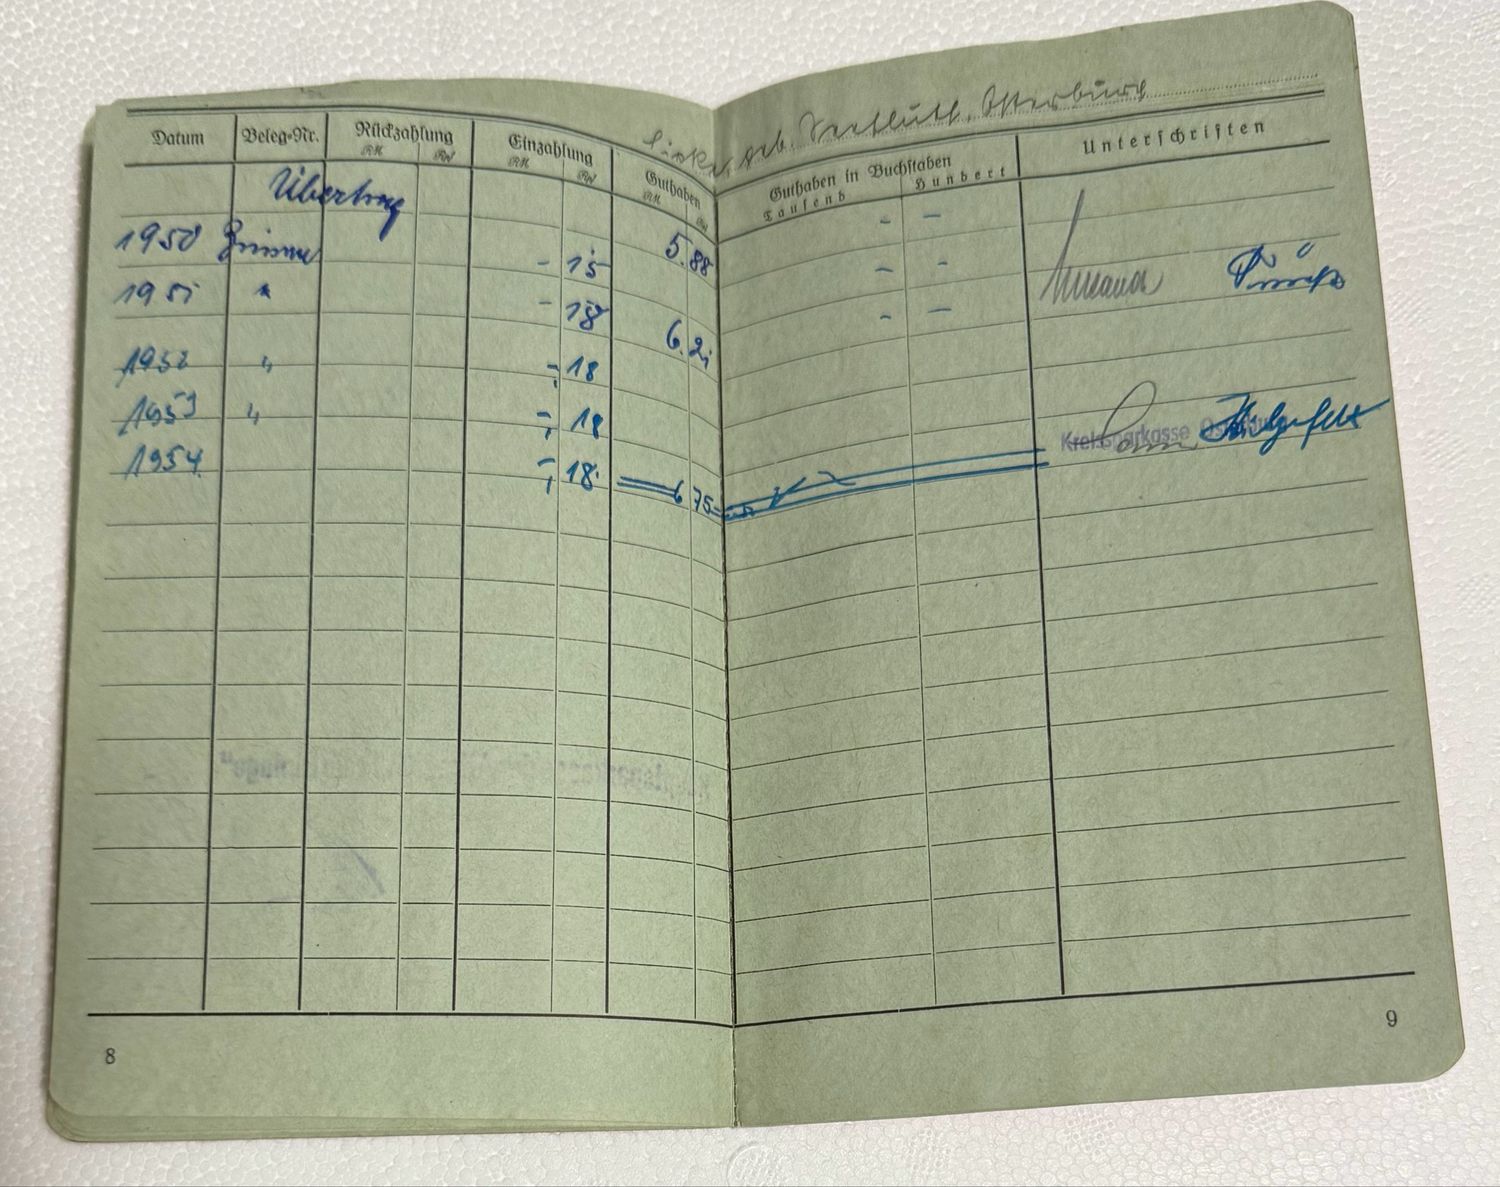 geb. Osterburg
Datum Beleg=Nr. Rückzahlung Einzahlung Guthaben Guthaben in Buchstaben Unterschriften
RM Rpf RM Rpf RM Rpf Tausend Hundert
Übertrag 5.88 - -
1950 Zinsen - 15 - -
1951 " - 18 6.21 - -
1952 " -, 18
1953 " -, 18 Kreissparkasse
1954 -, 18. 6 75
8
9